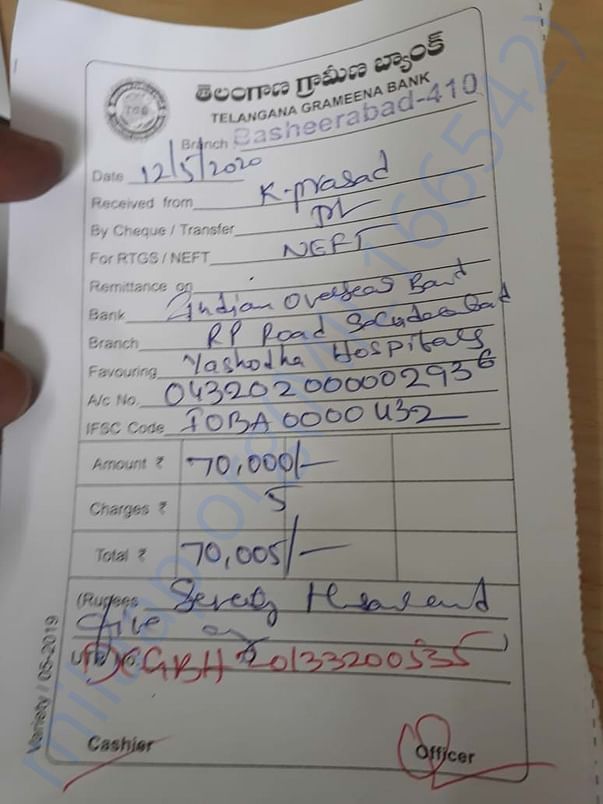 తెలంగాణ గ్రామీణ బ్యాంక్
TELANGANA GRAMEENA BANK
TGB
Branch Basheerabad-410
Date 12/5/2020
Received from K-prasad
By Cheque / Transfer
For RTGS / NEFT NEFT
Remittance on
Bank Indian Overseas Band
Branch RP Road
Favouring Yashodha Hospitals
A/c No. 043202000002936
IFSC Code IOBA0000432
Amount ₹ 70,000/-
Charges ₹ 5
Total ₹ 70,005/-
(Rupees Seventy Thousand
five
DCGBH 20133200535
Cashier Officer
Variety / 05-2019